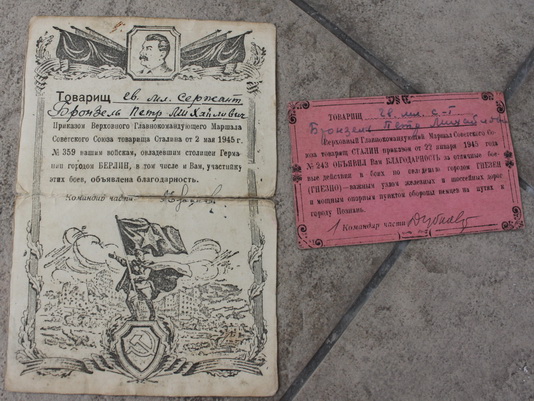 Товарищ гв. мл. Сержант
Бронзель Петр Михайлович
Приказом Верховного Главнокомандующего Маршала
Советского Союза товарища Сталина от 2 мая 1945 г.
№ 359 вашим войскам, овладевшим столицей Герма-
нии городом БЕРЛИН, в том числе и Вам, участнику
этих боев, объявлена благодарность.
Командир части
ТОВАРИЩ гв. мл. с-т
Бронзель Петр Михайлович
Верховный Главнокомандующий Маршал Советского Со-
юза товарищ СТАЛИН приказом от 22 января 1945 года
№ 243 ОБЪЯВИЛ Вам БЛАГОДАРНОСТЬ за отличные бое-
вые действия в боях по овладению городом ГНЕЗЕН
(ГНЕЗНО) — важным узлом железных и шоссейных дорог
и мощным опорным пунктом обороны немцев на путях к
городу Познань.
Командир части